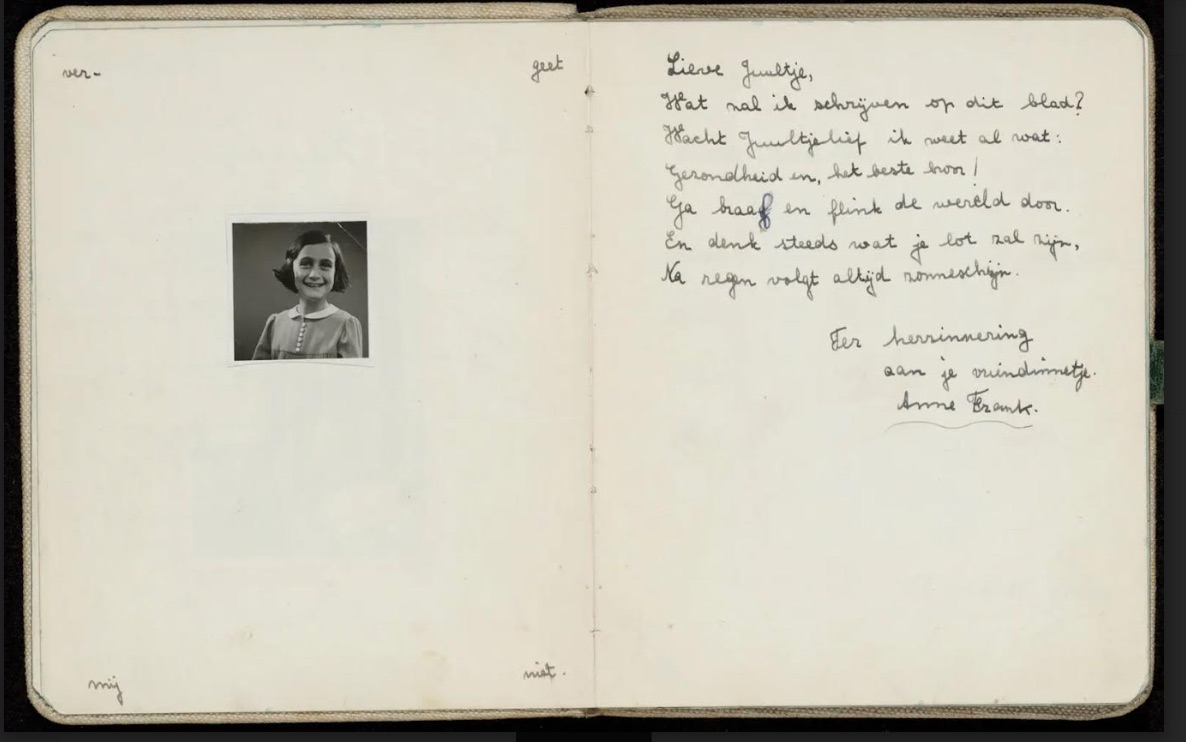 ver-
geet
mij
niet.
Lieve Juultje,
Wat zal ik schrijven op dit blad?
Wacht Juultjelief ik weet al wat:
Gezondheid en, het beste hoor!
Ga braaf en flink de wereld door.
En denk steeds wat je lot zal zijn,
Na regen volgt altijd zonneschijn.
Ter herrinnering
aan je vriendinnetje.
Anne Frank.